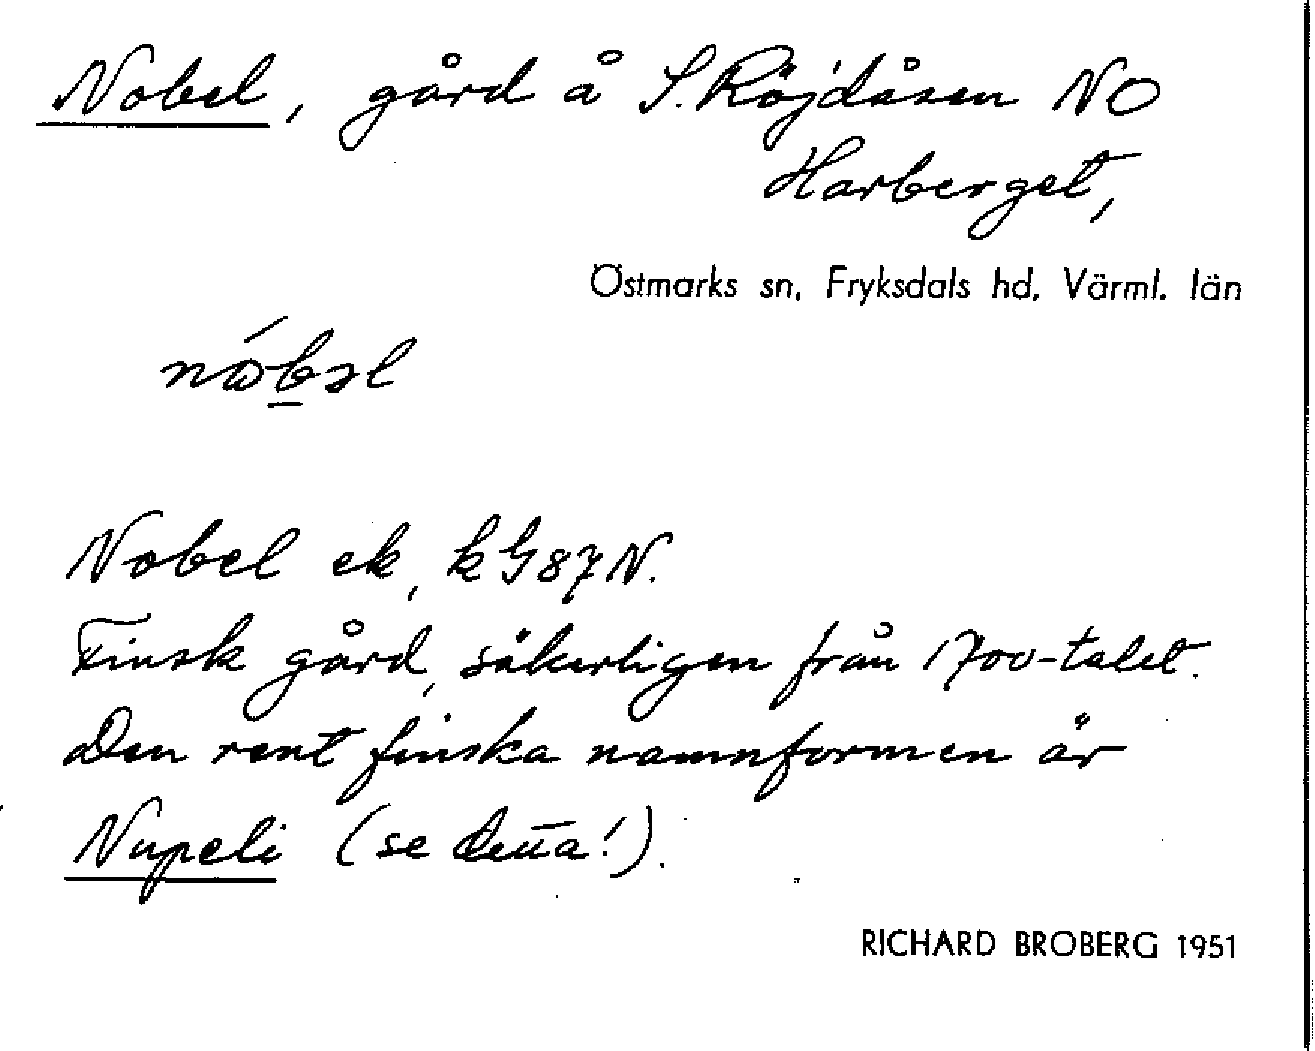 Nobel, gård å S. Röjdåsen NO
Harberget,
Östmarks sn, Fryksdals hd. Värml. län
nǿbəl
Nobel ek, k G87N.
Finsk gård, säkerligen från 1700-talet.
Den rent finska namnformen är
Nupeli (se detta!).
RICHARD BROBERG 1951